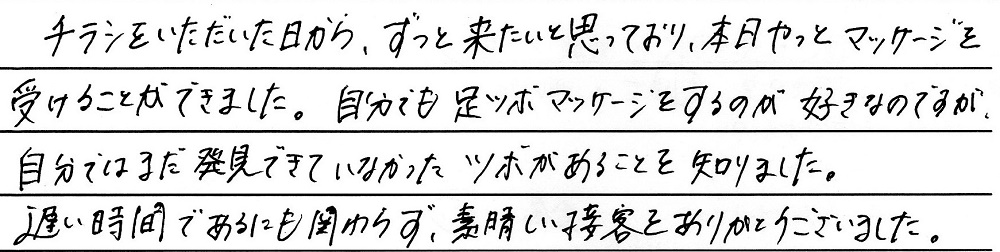 チラシをいただいた日から、ずっと来たいと思っており、本日やっとマッケージを
受けることができました。自分でも足ツボマッケージをするのが好きなのですが、
自分ではまだ発見できていなかったツボがあることを知りました。
遅い時間であるにも関わらず、素晴しい接客をありがとうございました。